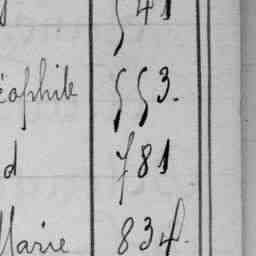 541
éophile 553.
d 781
Marie 834.